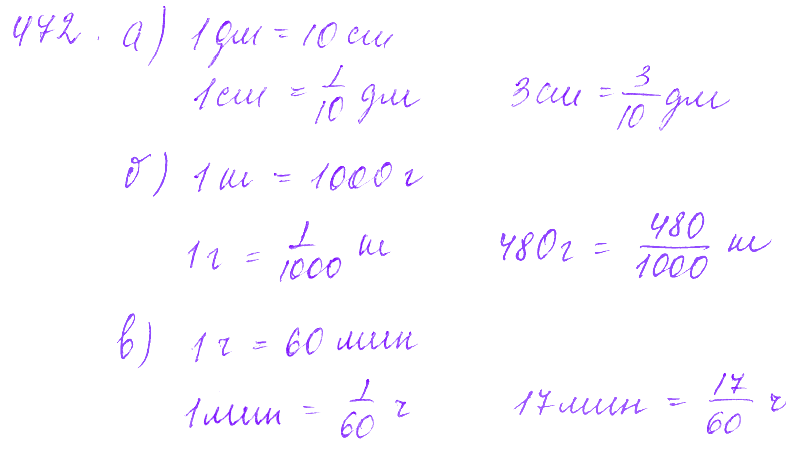 472. а) 1 дм = 10 см
1 см = 1/10 дм 3 см = 3/10 дм
б) 1 кг = 1000 г
1 г = 1/1000 кг 480 г = 480/1000 кг
в) 1 ч = 60 мин
1 мин = 1/60 ч 17 мин = 17/60 ч